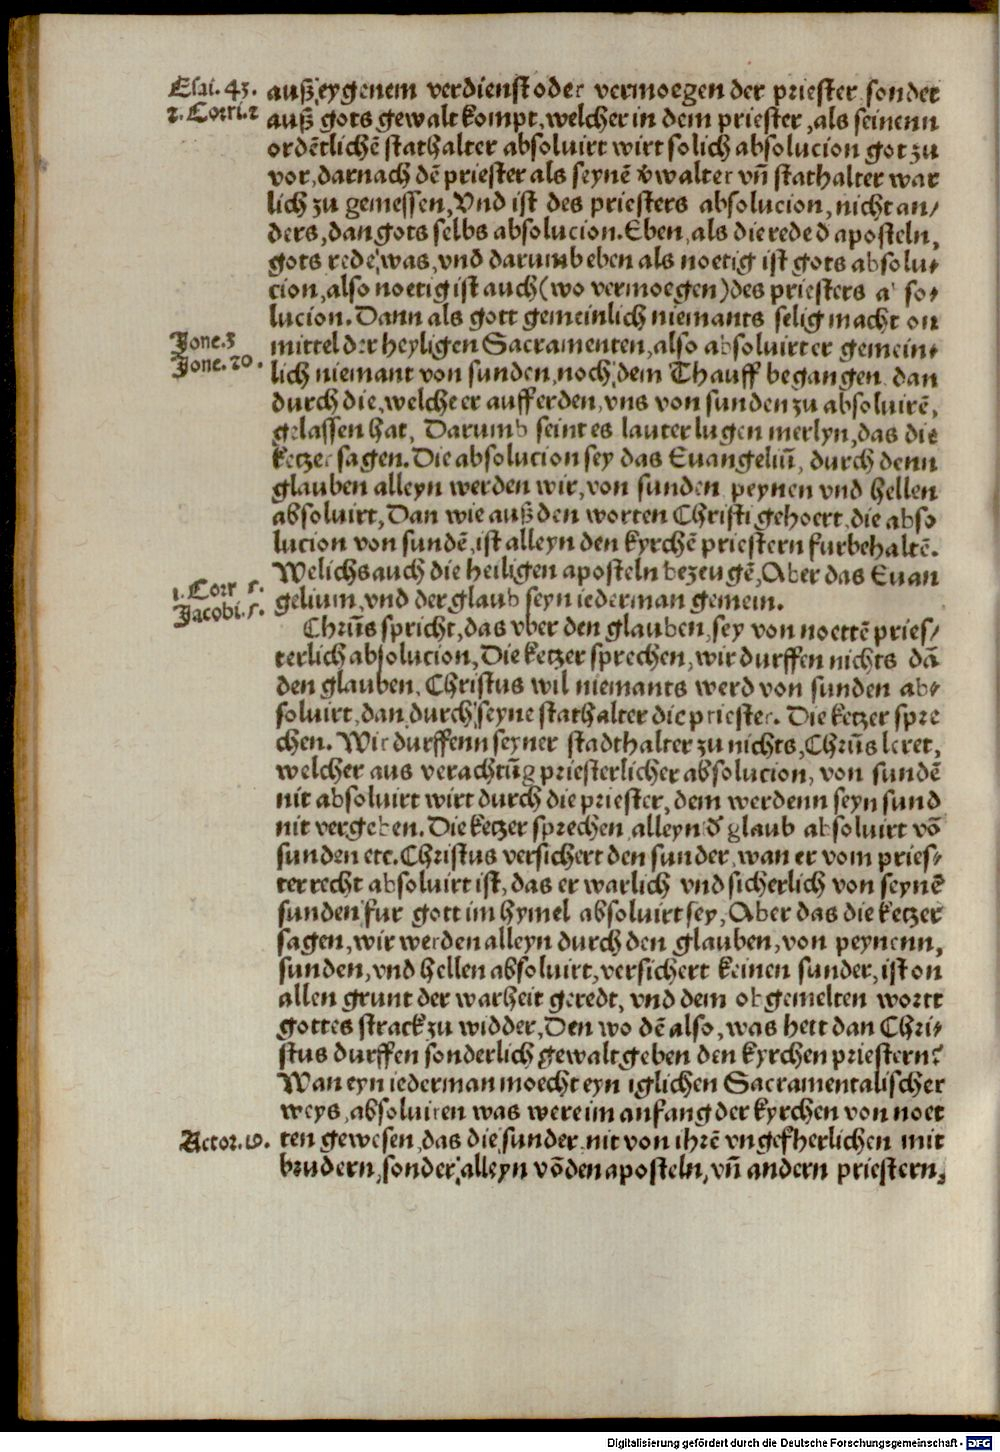 Esai. 43.
2. Corri. 2
auß eygenem verdienst oder vermoegen der priester sonder
auß gots gewalt kompt, welcher in dem priester, als seinenn
ordẽtlichẽ stathalter absoluirt wirt solich absolucion got zu
vor, darnach dẽ priester als seynẽ v̈walter vñ stathalter war
lich zu gemessen, Vnd ist des priesters absolucion, nicht an/
ders, dan gots selbs absolucion. Eben, als die rede d̉ aposteln,
gots rede, was, vnd darumb eben als noetig ist gots absolu/
cion, also noetig ist auch (wo vermoegen) des priesters a so/
lucion. Dann als gott gemeinlich niemants selig macht on
Jone. 3
mittel der heyligen Sacramenten, also absoluirt er gemein/
Jone. 20.
lich niemant von sunden, noch dem Thauff begangen dan
durch die, welche er auff erden, vns von sunden zu absoluirẽ,
gelassen hat, Darumb seint es lauter lugen merlyn, das die
ketzer sagen. Die absolucion sey das Euangeliũ, durch denn
glauben alleyn werden wir, von sunden peynen vnd hellen
absoluirt, Dan wie auß den worten Christi gehoert, die abso
lucion von sundẽ, ist alleyn den kyrchẽ priestern furbehaltẽ.
Welichs auch die heiligen aposteln bezeugẽ, Aber das Euan
1. Corr 5.
Jacobi. 5.
gelium, vnd der glaub seyn iederman gemein.
Chrũs spricht, das vber den glauben, sey von noettẽ pries/
terlich absolucion, Die ketzer sprechen, wir durffen nichts dã
den glauben, Christus wil niemants werd von sunden ab/
soluirt, dan durch seyne stathalter die priester. Die ketzer spre
chen. Wir durffenn seyner stadthalter zu nichts, Chrũs leret,
welcher aus verachtũg priesterlicher absolucion, von sundẽ
nit absoluirt wirt durch die priester, dem werdenn seyn sund
nit vergeben. Die ketzer sprechen alleyn d̉ glaub absoluirt võ
sunden etc. Christus versichert den sunder, wan er vom pries/
ter recht absoluirt ist, das er warlich vnd sicherlich von seynẽ
sunden fur gott im hymel absoluirt sey, Aber das die ketzer
sagen, wir werden alleyn durch den glauben, von peynenn,
sunden, vnd hellen absoluirt, versichert keinen sunder, ist on
allen grunt der warheit geredt, vnd dem obgemelten wortt
gottes strack zu widder, Den wo dẽ also, was hett dan Chri/
stus durffen sonderlich gewalt geben den kyrchen priestern?
Wan eyn iederman moecht eyn iglichen Sacramentalischer
weys, absoluiren was were im anfang der kyrchen von noet
Actor. 19.
ten gewesen, das die sunder nit von ihrẽ vngefherlichen mit
brudern, sonder alleyn võ den aposteln, vñ andern priestern,
Digitalisierung gefördert durch die Deutsche Forschungsgemeinschaft - DFG